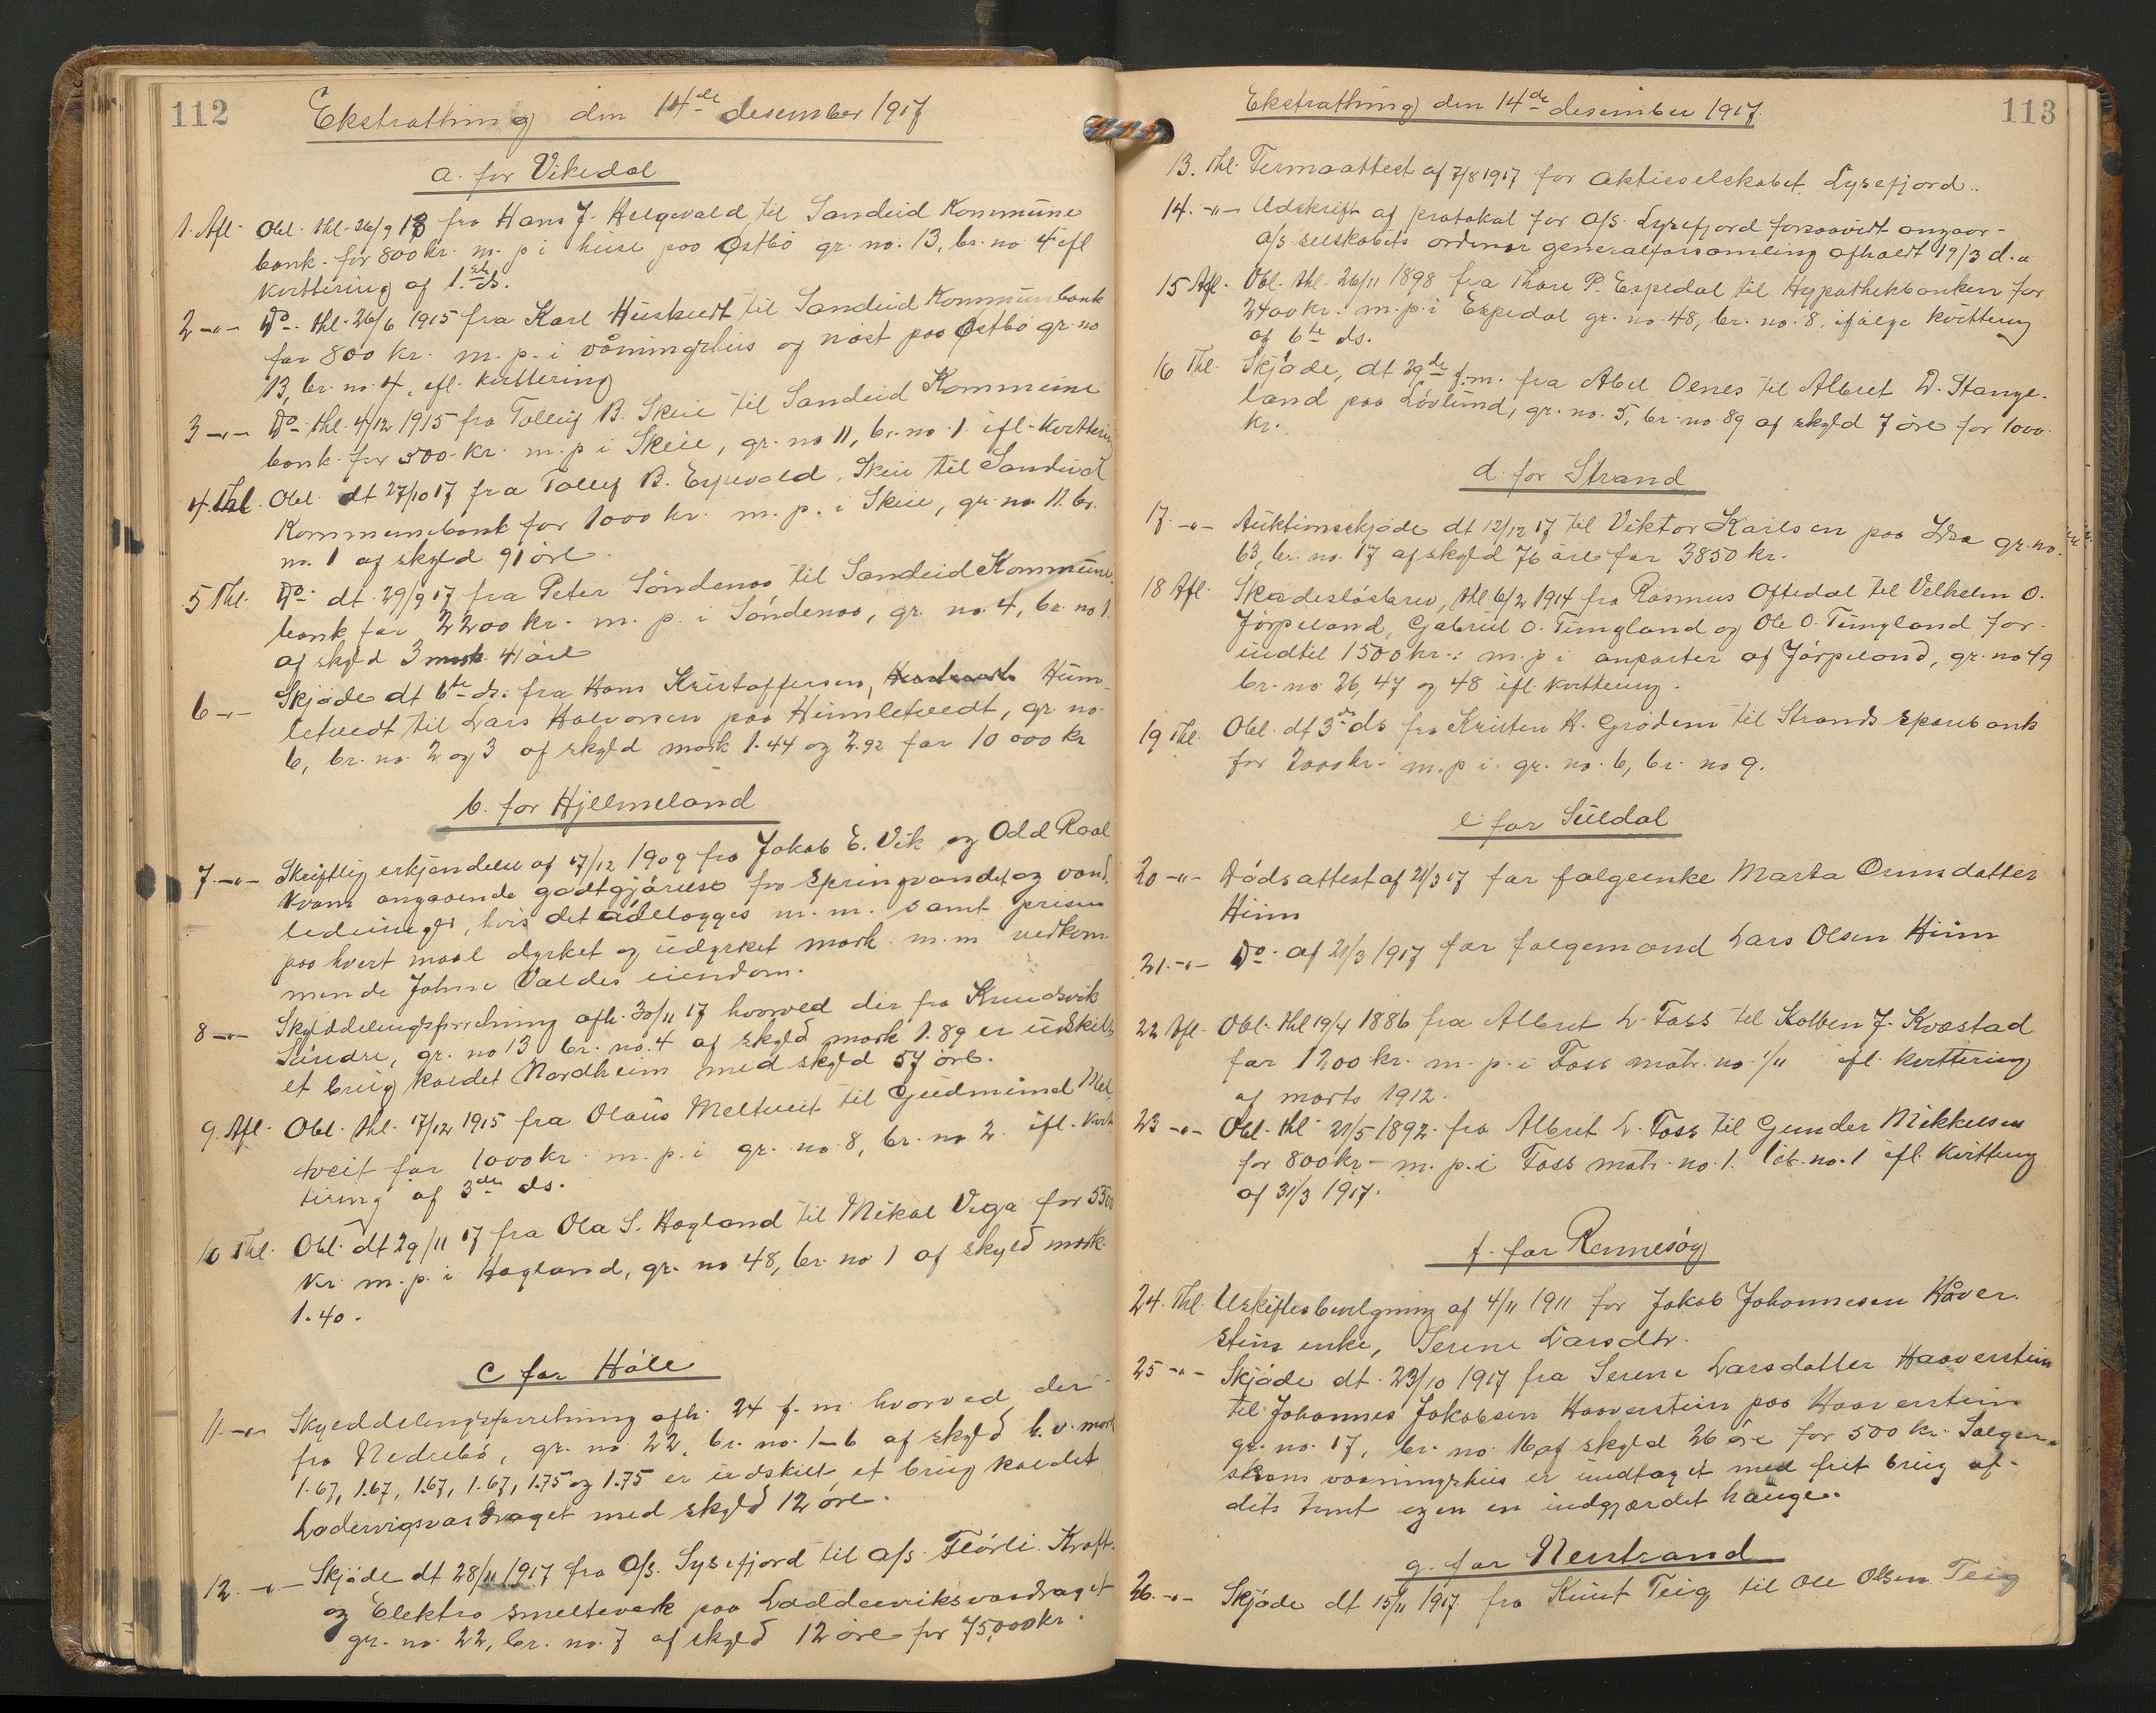 112
Ekstrathing den 14de desember 1917
a. for Vikedal
1. Afl. Obl. thl. 26/9 13 fra Hans J. Helgevald til Sandeid Kommune
bank for 800 kr. m. p i huse paa Østbø gr. no. 13, br. no 4 ifl
kvittering af 1ste ds.
2 -"- Do. thl. 26/6 1915 fra Karl Huskedt til Sandeid Kommunebank
for 800 kr. m. p. i våningshus og nøst paa Østbø gr. no
13, br. no. 4, ifl. kvittering
3 -"- Do. thl. 4/12 1915 fra Tolleif B. Skeie til Sandeid Kommune
bank for 500 kr. m. p i Skeie, gr. no 11, br. no. 1. ifl. kvittering
4. Thl. Obl. dt 27/10 17 fra Tollef B. Espevold, Skeie til Sandeid
Kommunebank for 1000 kr. m. p. i Skeie, gr. no 11. br.
no. 1 af skyld 91 øre.
5 Thl. Do. dt. 29/9 17 fra Peter Söndenaa til Sandeid Kommune
bank for 2200 kr. m. p. i Söndenaa, gr. no. 4, br. no 1.
af skyld 3 mark 41 öre
6 -"- Skjøde dt 6te ds. fra Hans Kristoffersen, Hum-
letvedt til Lars Halvorsen paa Humletvedt, gr. no.
6, br. no. 2 og 3 af skyld mark 1.44 og 2.92 for 10 000 kr
b. for Hjelmeland
7. -"- Skriftlig erkjendelse af 17/12 1909 fra Jakob E. Vik og Odd Raal
Kvam angaaende godtgjørelse fra springvandet og vand
ledninger, hvis det ødelægges m. m. samt prisen
paa hvert maal dyrket og udyrket mark m. m vedkom
mende Johne Valdes eiendom.
8 -"- Skylddelingsforretning afh. 30/11 17 hvorved der fra Knudsvik
Søndre, gr. no 13 br. no. 4 af skyld mark 1.89 er udskilt
et brug kaldet Nordheim med skyld 57 öre.
9. Afl. Obl. thl. 17/12 1915 fra Olaus Meltveit til Gudmund Mel
tveit for 1000 kr. m. p. i gr. no 8, br. no 2. ifl. kvit
tering af 3die ds.
10 Thl. Obl. dt 29/11 17 fra Ola S. Hagland til Mikal Vega for 5500
kr. m. p. i Hagland, gr. no 48, br. no 1 af skyld mark
1.40.
c for Høle
11. -"- Skylddelingsforretning afh. 24 f. m. hvorved der
fra Nedrebø, gr. no 22, br. no. 1-6 af skyld h. v. mark
1.67, 1.67, 1.67, 1.67, 1.75 og 1.75 er udskilt et brug kaldet
Ladervigsvasdraget med skyld 12 øre.
12. -"- Skjøde dt 28/11 1917 fra A/S. Lysefjord til A/S. Flörli Kraft
og Elektro smelteverk paa Laddervriksvasdraget
gr. no. 22, br. no. 7 af skyld 12 øre for 75,000 kr.
113
Ekstrathing den 14de desember 1917.
13. Thl. Firmaattest af 7/8 1917 for Aktieselskabet Lysefjord..
14. -"- Udskrift af protokol for A/S. Lysefjord forsaavidt angaar-
A/S selskabets ordinær generalforsamling afholdt 19/3 d.a
15 Afl. Obl. thl. 26/11 1898 fra Thore P. Espedal til Hypothekbanken for
2400 kr. m. p. i Espedal gr. no. 48, br. no. 8, ifølge kvittering
af 6te ds.
16 Thl. Skjøde, dt 29de f.m. fra Abel Oenes til Albret D. Stange-
land paa Lövlund, gr. no. 5, br. no. 89 af skyld 7 øre for 1000
kr.
d. for Strand
17. -"- Auktionsskjøde dt 12/12 17 til Viktor Karlsen paa Idse gr. no.
63, br. no. 17 af skyld 76 øre for 3850 kr.
18 Afl. Skadesløsbrev, thl 6/2 1914 fra Rasmus Oftedal til Vilhelm O.
Jörpeland, Gabriel O. Tungland og Ole O. Tungland for
indtil 1500 kr.: m. p i anparter af Jörpeland, gr. no 49
br. no 26, 47 og 48 ifl. kvittering.
19 Thl. Obl. dt 3die ds fra Kristen H. Grödem til Strands sparebank
for 2000 kr. m. p i gr. no. 6, br. no 9.
e for Suldal
20 -"- Dødsattest af 21/3 17 for folgeenke Marta Ormsdatter
Hiim
21. -"- Do. af 21/3 1917 for folgemand Lars Olsen Hiim
22 Afl. Obl. thl 19/4 1886 fra Albret L. Foss til Kolben J. Kvæstad
for 1200 kr. m. p. i Foss matr. no. 1/11 ifl. kvittering
af marts 1912.
23 -"- Obl. thl 21/5 1892. fra Albret L. Foss til Gunder Mikkelsen
for 800 kr. m. p. i Foss matr. no. 1. löb. no. 1 ifl. kvittering
af 31/3 1917.
f. for Rennesøy
24. Thl. Uskiftesbevilgning af 4/11 1911 for Jakob Johannesen Håver
stein enke, Serene Larsdtr.
25 -"- Skjøde dt. 23/10 1917 fra Serene Larsdatter Haaverstein
til Johannes Jakobsen Haaverstein paa Haaverstein
gr. no. 17, br. no. 16 af skyld 26 øre for 500 kr. Sælger-
skens vaaningshus er undtaget med frit brug af-
dets tomt og en indgjærdet hauge.
g. for Nerstrand
26. -"- Skjøde dt 15/11 1917. fra Knut Teig til Ole Olsen Teig